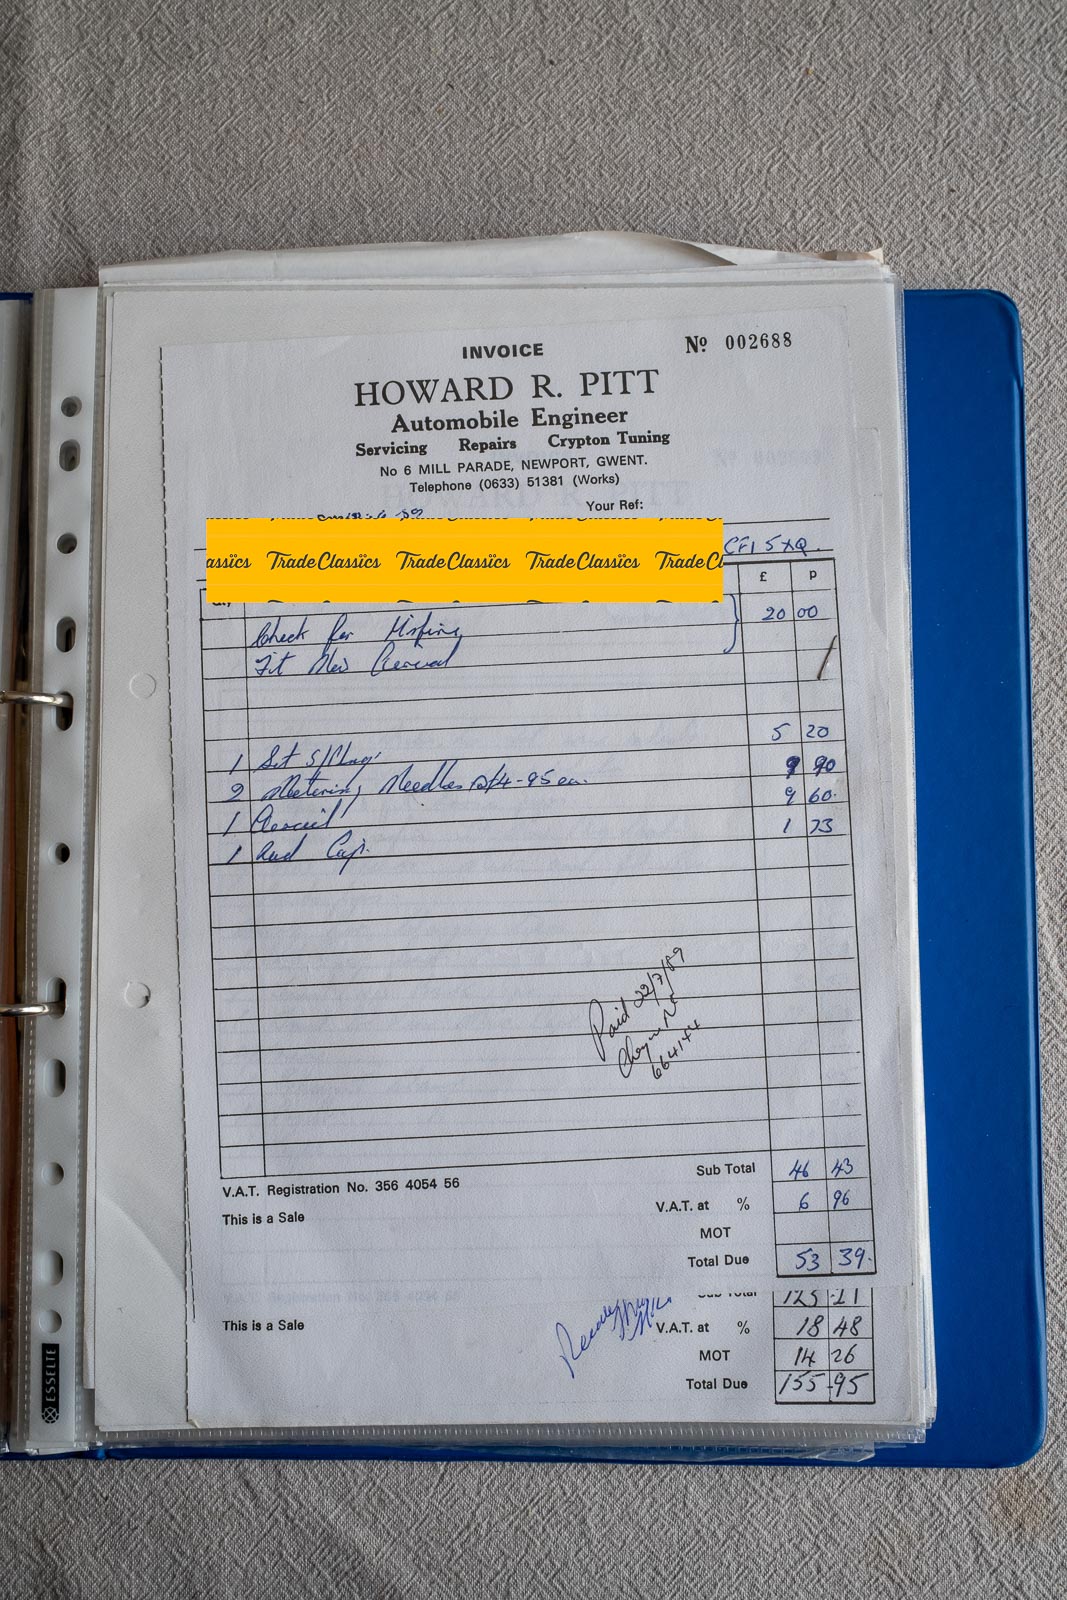 INVOICE
Nº 002688
HOWARD R. PITT
Automobile Engineer
Servicing Repairs Crypton Tuning
No 6 MILL PARADE, NEWPORT, GWENT.
Telephone (0633) 51381 (Works)
Your Ref:
CF1 5XQ.
assics TradeClassics TradeClassics TradeClassics TradeCl
£ p
20 00
Check for Misfiring
Fit New Aerial
1 Set S/Plugs 5 20
2 Metering Needles @ 4-95 ea. 9 90
1 Aerial 9 60.
1 Rad Cap. 1 73
Paid 22/7/89
Cheque No
664144
Sub Total 46 43
V.A.T. Registration No. 356 4054 56
V.A.T. at % 6 96
This is a Sale
MOT
Total Due 53 39.
Sub Total 125 21
This is a Sale
V.A.T. at % 18 48
MOT 14 26
Total Due 155-95
ESSELTE